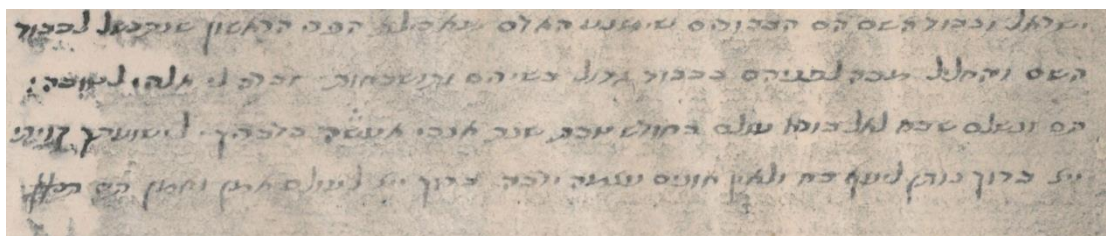 ישראל וכבוד השם הם הכבודים שימנע האדם הפרי הראשון שנתבשל לכבוד
השם והחליל מכה לפניהם בכבוד גדול בשירים ותושבחות. זכרה לי אלהי לטובה:
תם ונשלם שבח לאל בורא עולם בחודש טבת שנת אנכי אעשה כדברך. לישועתך קויתי
ייי ברוך נותן ליעף כח ולאין אונים עצמה ירבה. ברוך ייי לעולם אמן ואמן תם